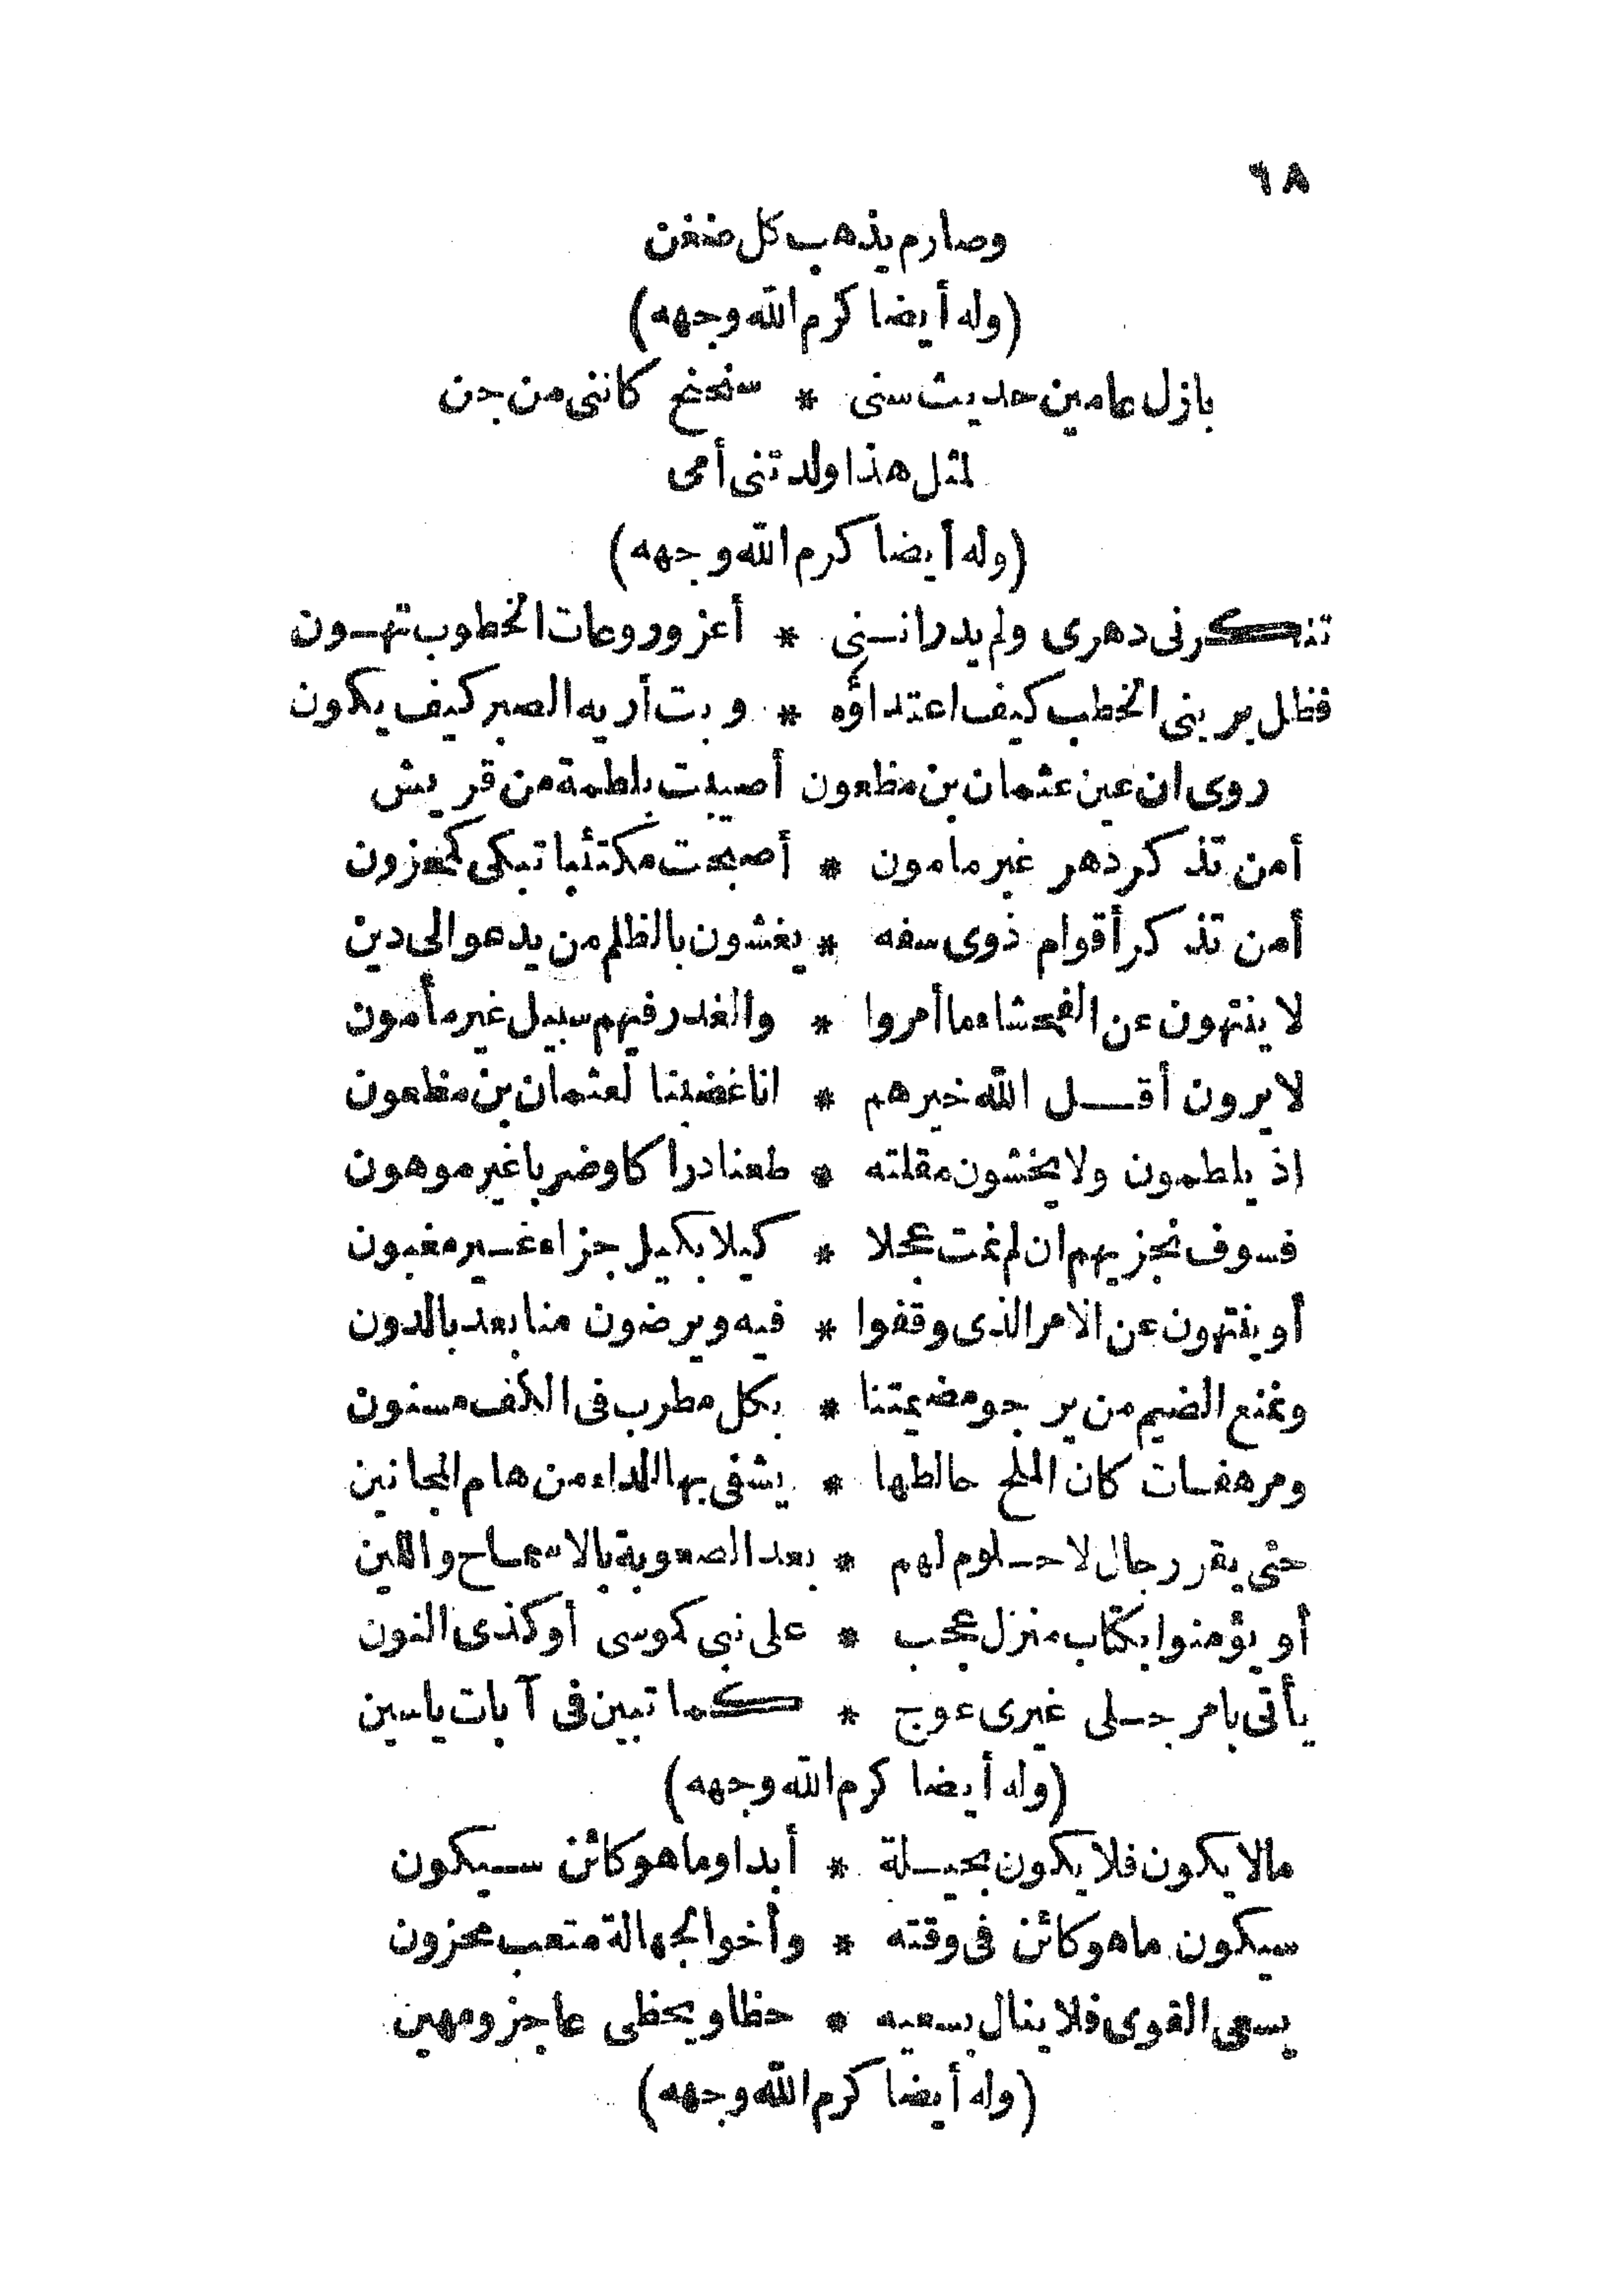 ٦٨
وصارم يذهب كل ضغن
(وله أيضا كرم الله وجهه)
بازل عامين حديث سنى * سنحنح كاننى من جن
لمثل هذا ولدتنى أمى
(وله أيضا كرم الله وجهه)
تنكرنى دهرى ولم يدر اننى * أعز وروعات الخطوب تهون
فظل يرينى الخطب كيف اعتداؤه * وبت أريه الصبر كيف يكون
روى ان عين عثمان بن مظعون أصيبت بلطمة من قريش
أمن تذكر دهر غير مامون * أصبحت مكتئبا تبكى كمحزون
أمن تذكر أقوام ذوى سفه * يغشون بالظلم من يدعو الى دين
لا ينتهون عن الفحشاء ما أمروا * والغدر فيهم سبيل غير مأمون
لا يرون أقل الله خيرهم * انا غضبنا لعثمان بن مظعون
اذ يلطمون ولا يخشون مقلته * طعنا دراكا وضربا غير موهون
فسوف نجزيهم ان لم نمت عجلا * كيلا بكيل جزاء غير مغبون
أو ينتهون عن الامر الذى وقفوا * فيه ويرضون منا بعد بالدون
ونمنع الضيم من يرجو مضيمتنا * بكل مطرب فى الكف مسنون
ومرهفات كان الملح خالطها * يشفى بها الداء من هام المجانين
حتى يقر رجال لا حلوم لهم * بعد الصعوبة بالاسماح واللين
أو يؤمنوا بكتاب منزل عجب * على نبى كموسى أو كذى النون
يأتى بامر جلى غير ذى عوج * كما تبين فى آيات ياسين
(وله أيضا كرم الله وجهه)
مالا يكون فلا يكون بحيلة * أبدا وما هو كائن سيكون
سيكون ما هو كائن فى وقته * وأخو الجهالة متعب محزون
يسعى القوى فلا ينال بسعيه * حظا ويحظى عاجز ومهين
(وله أيضا كرم الله وجهه)